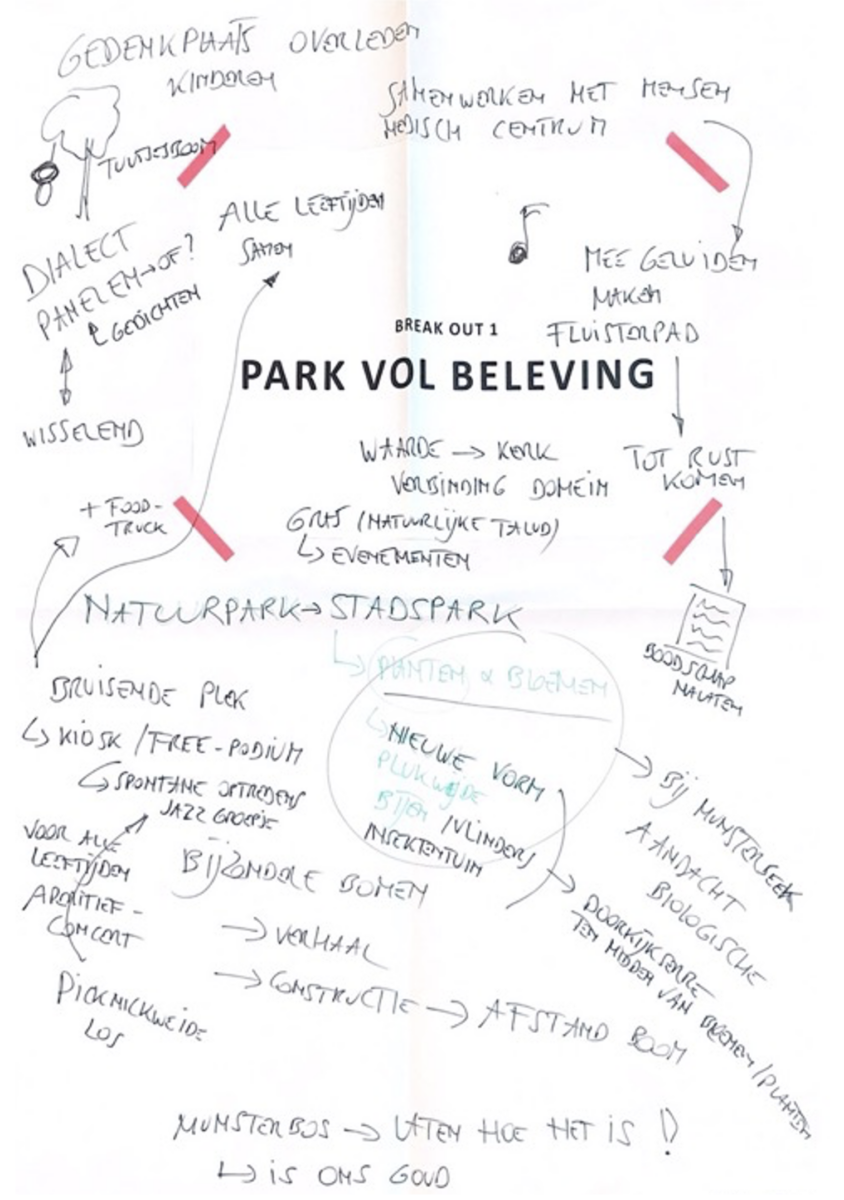 GEDENKPLAATS OVERLEDEN
KINDEREN
TUUTJESBOOM
SAMENWERKEN MET MENSEN
MEDISCH CENTRUM
ALLE LEEFTIJDEN
SAMEN
DIALECT
PANELEN → OF?
↳ GEDICHTEN
WISSELEND
MEE GELUIDEN
MAKEN
FLUISTERPAD
BREAK OUT 1
PARK VOL BELEVING
WAARDE → KERK
VERBINDING DOMEIN
TOT RUST
KOMEN
+ FOOD-
TRUCK
GRAS (NATUURLIJKE TALUD)
↳ EVENEMENTEN
NATUURPARK → STADSPARK
↳ PLANTEN & BLOEMEN
BOODSCHAP
NALATEN
BRUISENDE PLEK
↳ KIOSK / FREE-PODIUM
↳ SPONTANE OPTREDENS
JAZZ GROEPJE
↳ NIEUWE VORM
PLUKWEIDE
BIJEN / VLINDERS
INSEKTENTUIN
→ BIJ MUNSTERBEEK
AANDACHT
BIOLOGISCHE
→ DOORKIJKSERRE
TEN MIDDEN VAN BLOEMEN / PLANTEN
VOOR ALLE
LEEFTIJDEN
APERITIEF-
CONCERT
PICKNICKWEIDE
LOS
BIJZONDERE BOMEN
→ VERHAAL
→ CONSTRUCTIE → AFSTAND BOOM
MUNSTERBOS → LATEN HOE HET IS !
↳ IS ONS GOUD